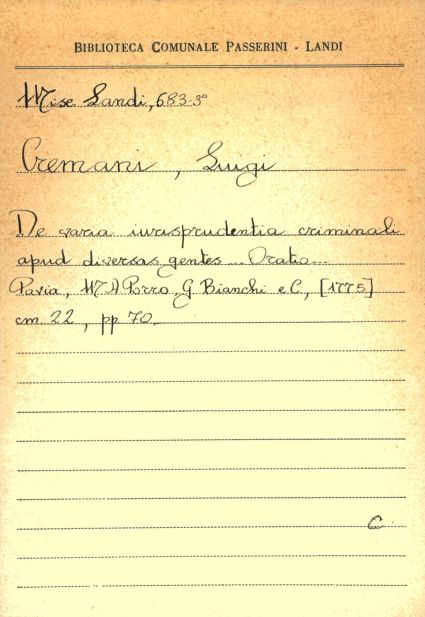 BIBLIOTECA COMUNALE PASSERINI - LANDI
Misc. Landi, 683-3°
Cremani, Luigi
De varia iurisprudentia criminali
apud diversas gentes... Oratio...
Pavia, M A Porro, G. Bianchi e C., [1775]
cm. 22, pp 70_
C